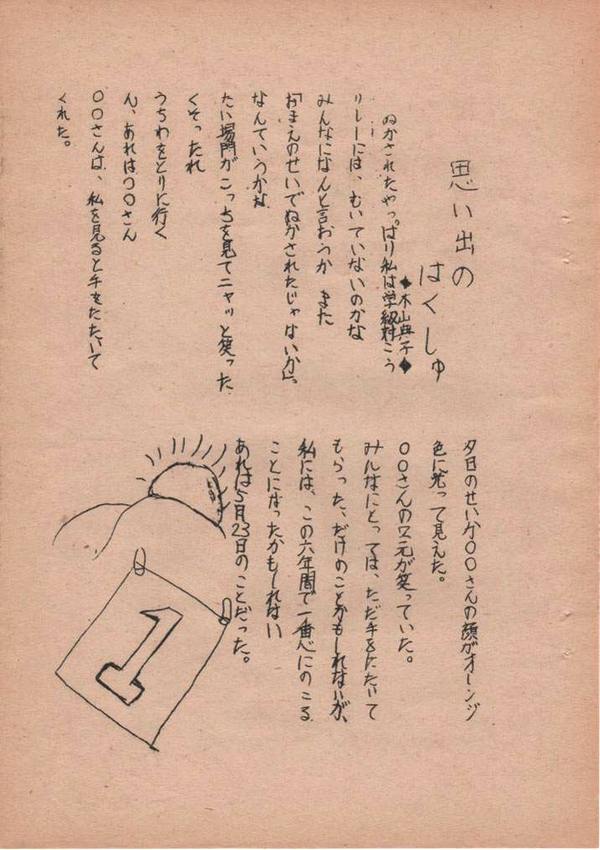 思い出の
はくしゅ
◆木山典子◆
ぬかされたやっぱり私は学級対こう
リレーには、むいていないのかな
みんなになんと言おうか また
「おまえのせいでぬかされたじゃないか」。
なんていうかな
たい場門がこっちを見てニヤッと笑った
くそったれ
うちわをとりに行く
ん、あれは〇〇さん
〇〇さんは、私を見ると手をたたいて
くれた。
夕日のせいか〇〇さんの顔がオレンジ
色に光って見えた。
〇〇さんの口元が笑っていた。
みんなにとっては、ただ手をたたいて
もらった、だけのことかもしれないが、
私には、この六年間で一番心にのこる
ことになったかもしれない
あれは5月23日のことだった。
1